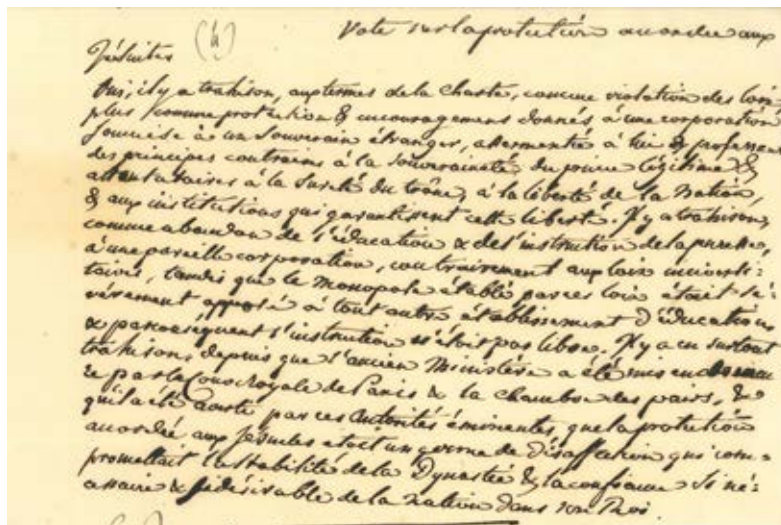 (4) Vote sur la protection accordée aux
Jésuites
Oui, il y a trahison, aux termes de la Charte, comme violation des loix
plus comme protection & encouragemens donnés à une corporation
soumise à un Souverain étranger, assermentée à lui & professant
des principes contraires à la souveraineté du prince légitime &
attentatoires à la sureté du trône, à la liberté de la Nation,
& aux institutions qui garantissent cette liberté. Il y a trahison,
comme abandon de l'éducation & de l'instruction de la jeunesse,
à une pareille corporation, contrairement aux loix universi-
taires, tandis que le monopole établi par ces loix étoit sé-
vèrement opposé à tout autre établissement d'éducation
& par conséquent l'instruction n'étoit pas libre. Il y a eu surtout
trahison, depuis que l'ancien Ministère a été mis en demeu
re par la Cour royale de Paris & la chambre des pairs, &
qu'il a été par ces autorités éminentes, que la protection
accordée aux Jésuites étoit un germe de désaffection qui com-
promettait la stabilité de la Dynastie & la confiance si né-
cessaire & si désirable de la nation dans son Roi.